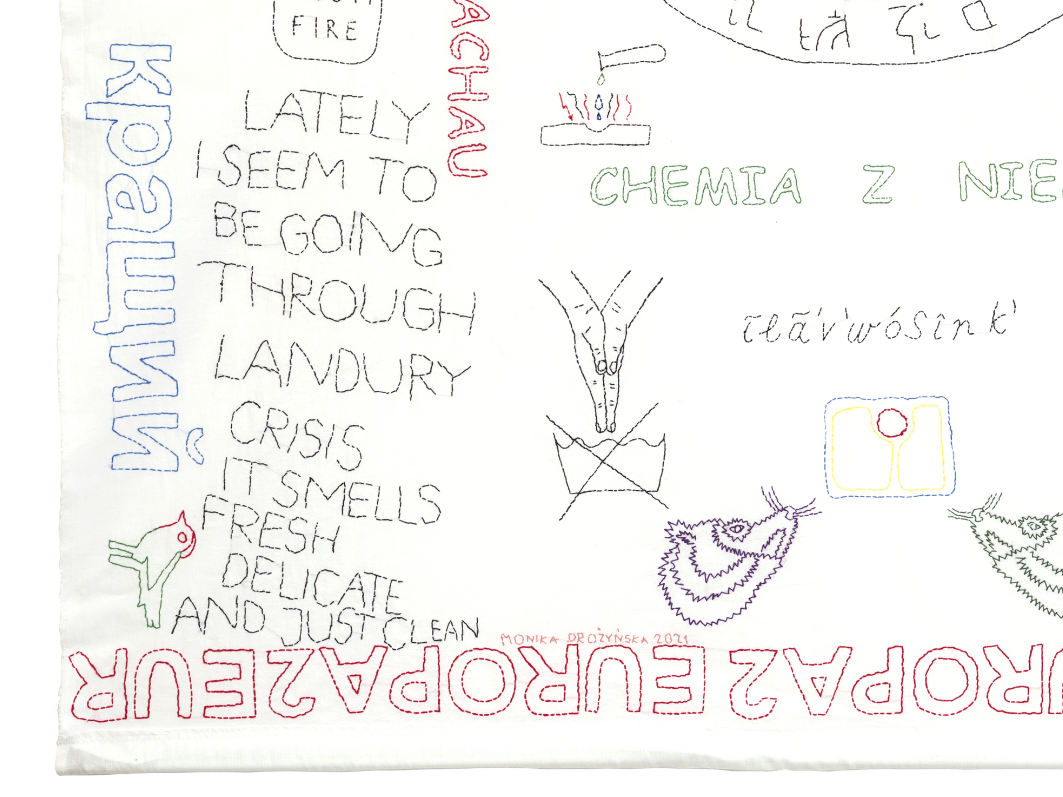 FIRE
ACHAU
кращий
LATELY
I SEEM TO
BE GOING
THROUGH
LANDURY
CRISIS
IT SMELLS
FRESH
DELICATE
AND JUST CLEAN
CHEMIA Z NIE
MONIKA DROŻYŃSKA 2021
EUROPA2 EUROPA2 EUR